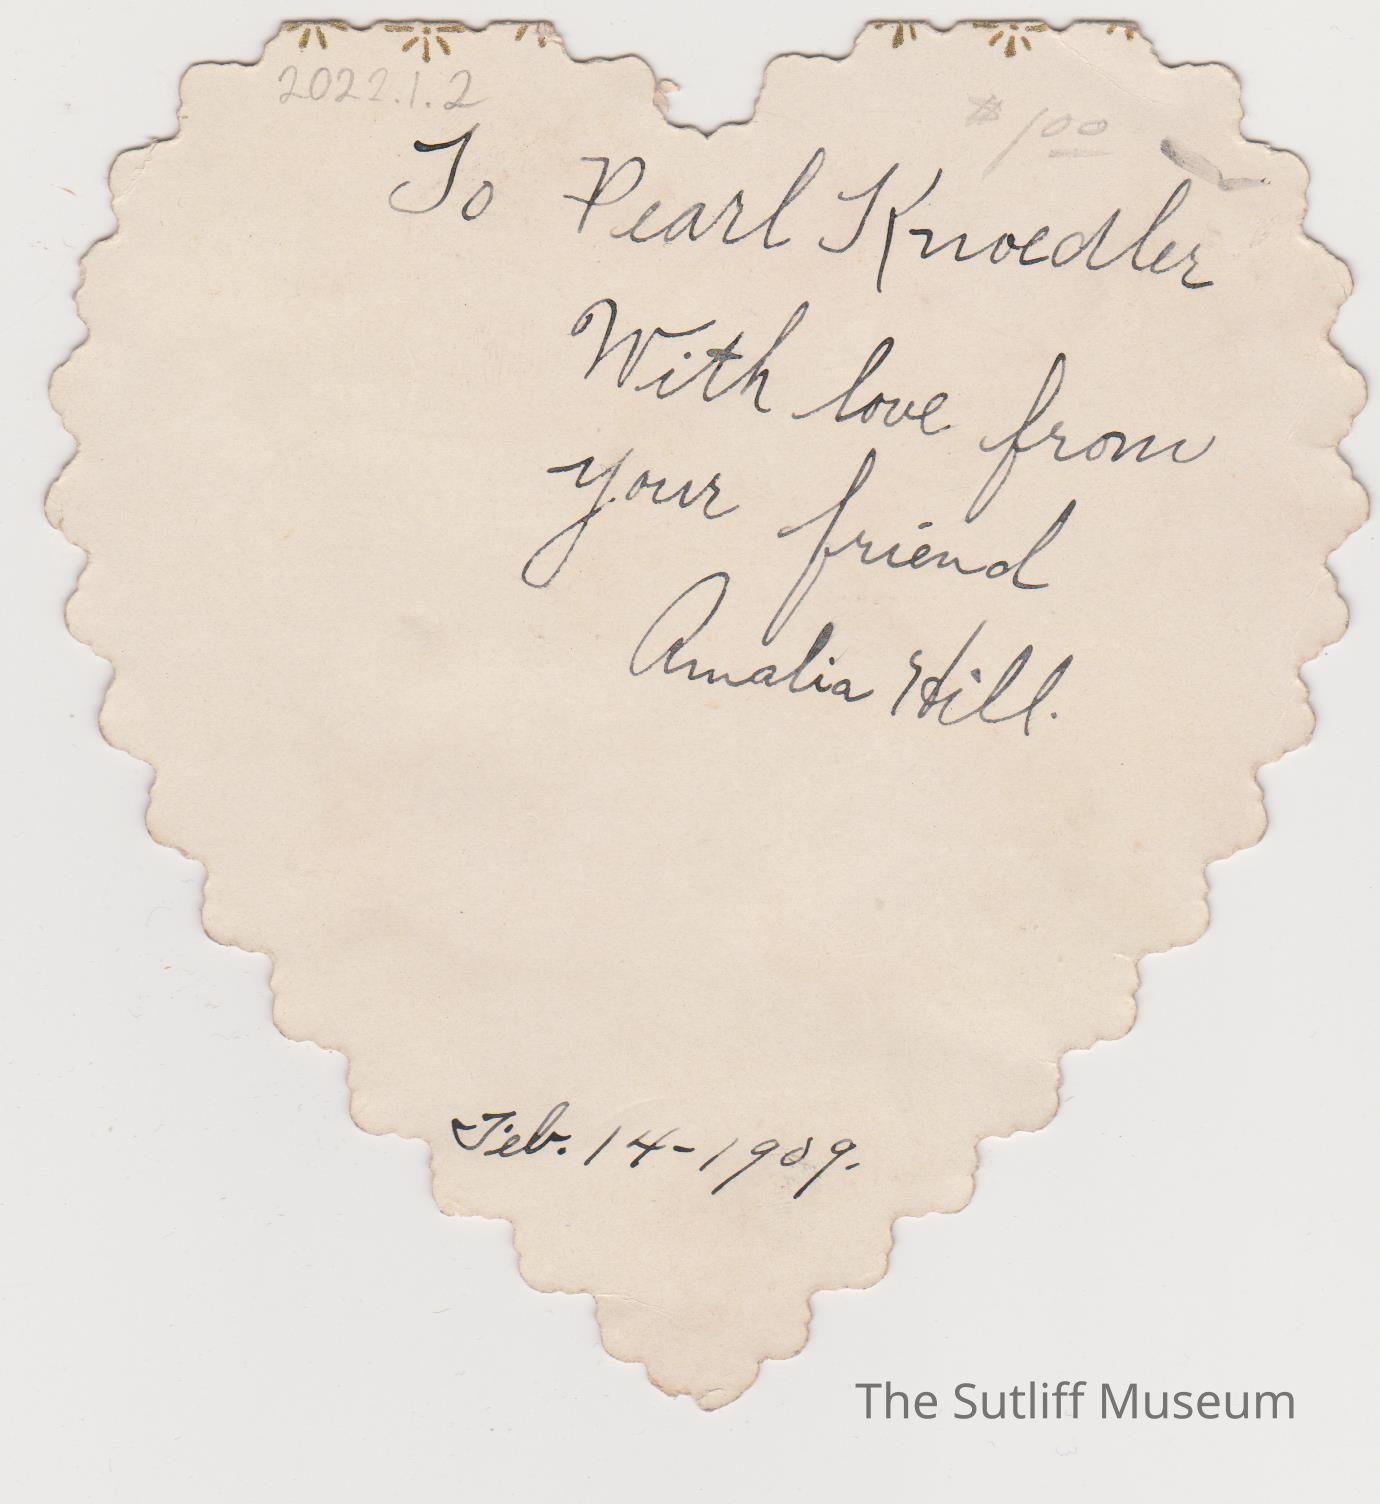 2022.1.2
$1.00
To Pearl Knoedler
With love from
your friend
Amalia Hill.
Feb. 14-1909.
The Sutliff Museum